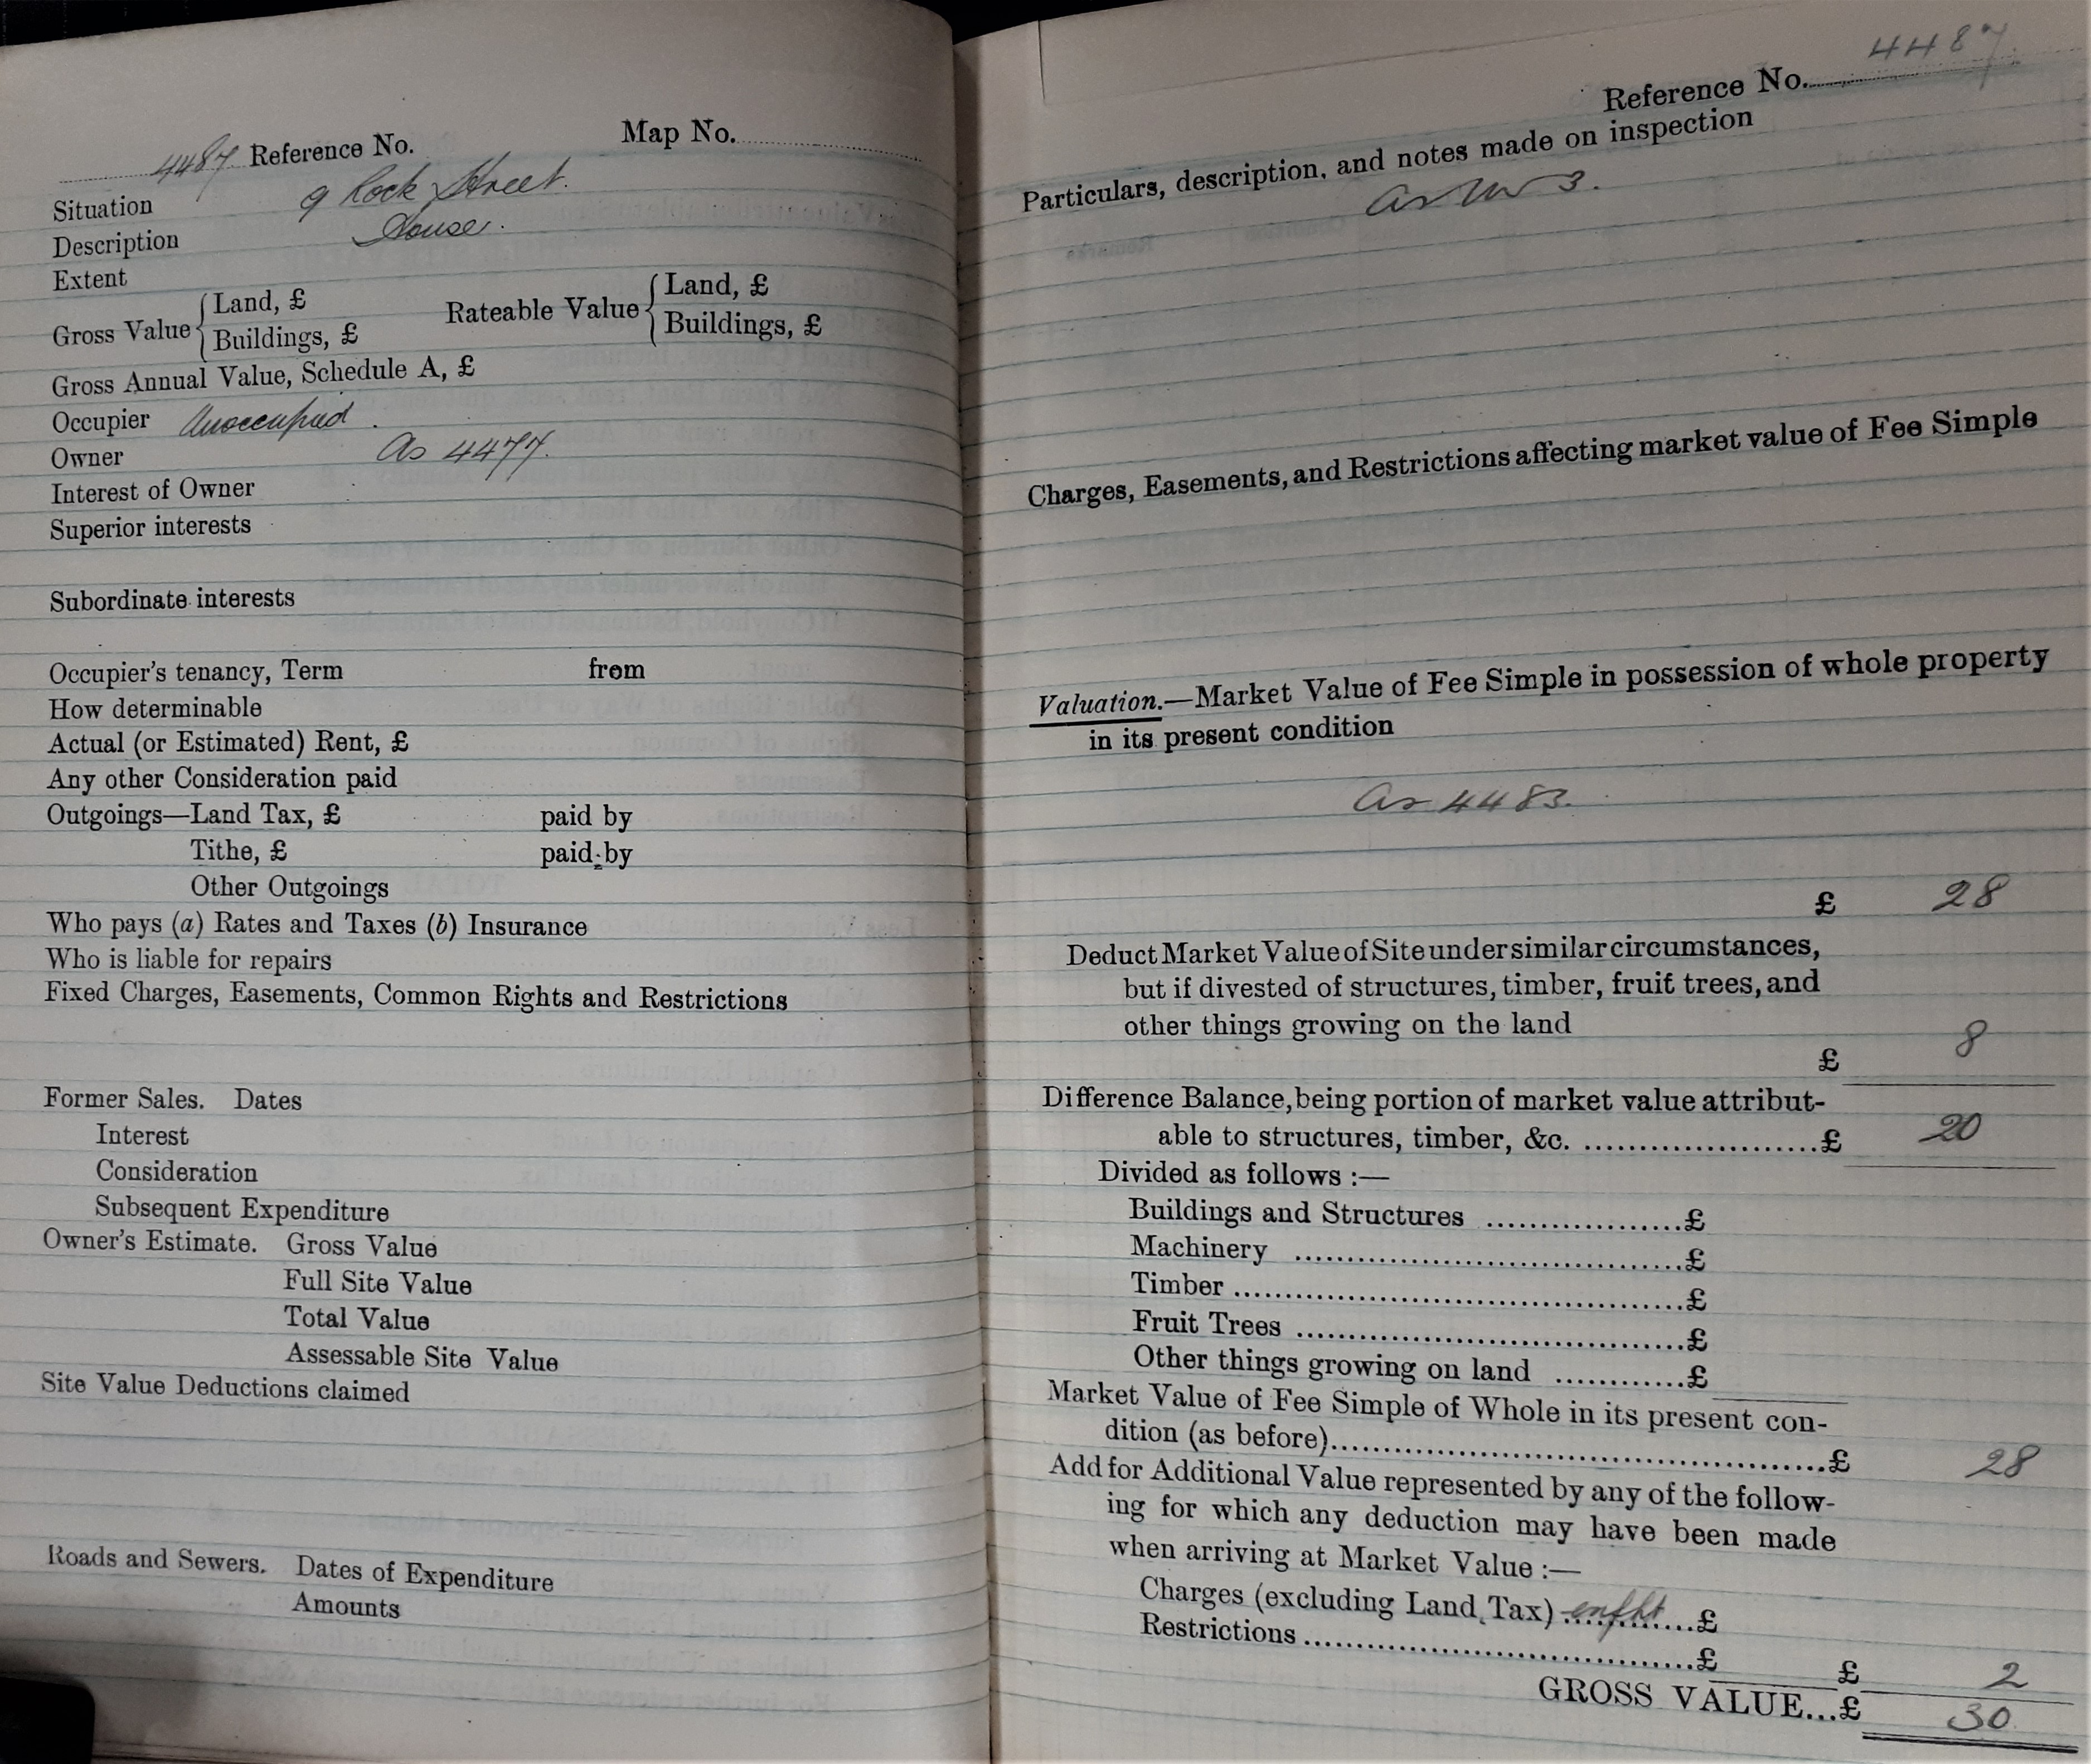 4487 Reference No. Map No.
Situation 9 Rock Street.
Description House.
Extent
Gross Value { Land, £ Rateable Value { Land, £
Buildings, £ Buildings, £
Gross Annual Value, Schedule A, £
Occupier Unoccupied.
Owner As 4477.
Interest of Owner
Superior interests
Subordinate interests
Occupier's tenancy, Term from
How determinable
Actual (or Estimated) Rent, £
Any other Consideration paid
Outgoings—Land Tax, £ paid by
Tithe, £ paid by
Other Outgoings
Who pays (a) Rates and Taxes (b) Insurance
Who is liable for repairs
Fixed Charges, Easements, Common Rights and Restrictions
Former Sales. Dates
Interest
Consideration
Subsequent Expenditure
Owner's Estimate. Gross Value
Full Site Value
Total Value
Assessable Site Value
Site Value Deductions claimed
Roads and Sewers. Dates of Expenditure
Amounts
Reference No. 4487
Particulars, description, and notes made on inspection
as 3.
Charges, Easements, and Restrictions affecting market value of Fee Simple
Valuation.—Market Value of Fee Simple in possession of whole property
in its present condition
as 4483.
£ 28
Deduct Market Value of Site under similar circumstances,
but if divested of structures, timber, fruit trees, and
other things growing on the land
£ 8
Difference Balance, being portion of market value attribut-
able to structures, timber, &c. ......................£ 20
Divided as follows :—
Buildings and Structures ..................£
Machinery ....................................£
Timber ..........................................£
Fruit Trees ....................................£
Other things growing on land ............£
Market Value of Fee Simple of Whole in its present con-
dition (as before)..............................................£ 28
Add for Additional Value represented by any of the follow-
ing for which any deduction may have been made
when arriving at Market Value :—
Charges (excluding Land Tax) ............£
Restrictions ....................................£
£ 2
GROSS VALUE...£ 30